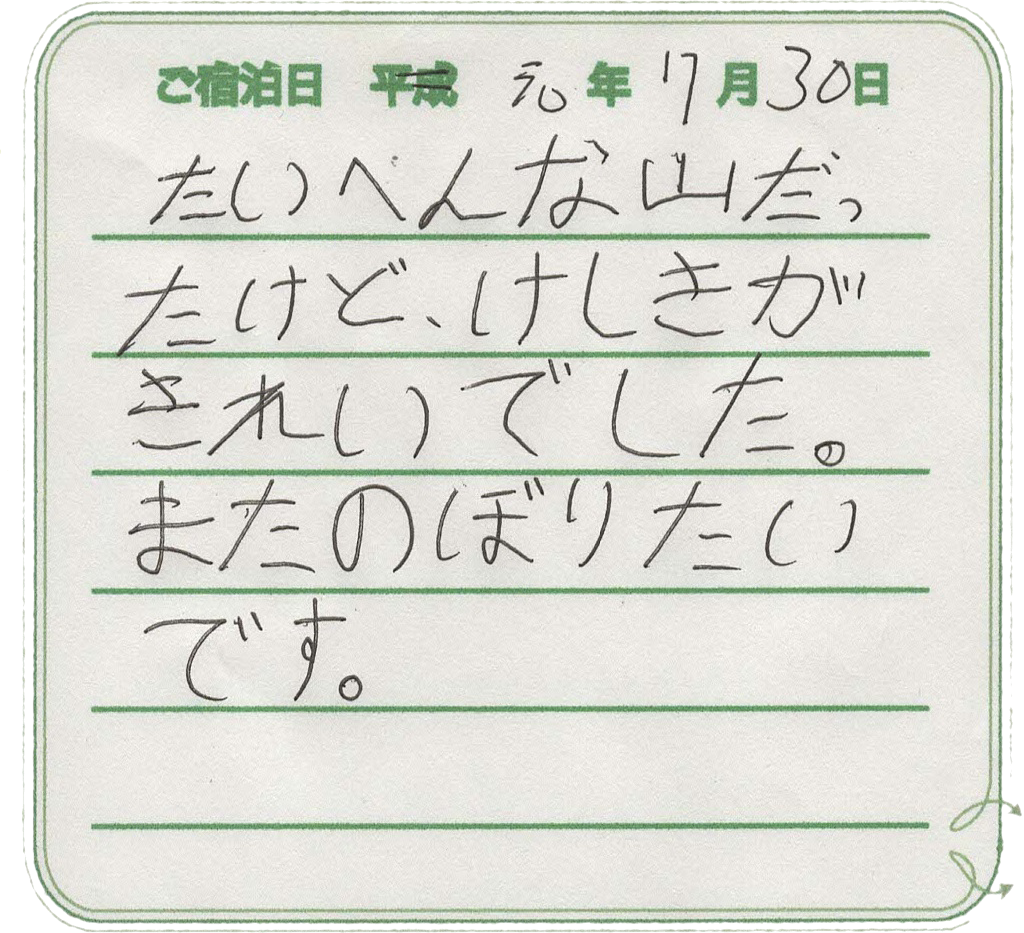 ご宿泊日 平成 元年 7月30日
たいへんな山だっ
たけど、けしきが
きれいでした。
またのぼりたい
です。